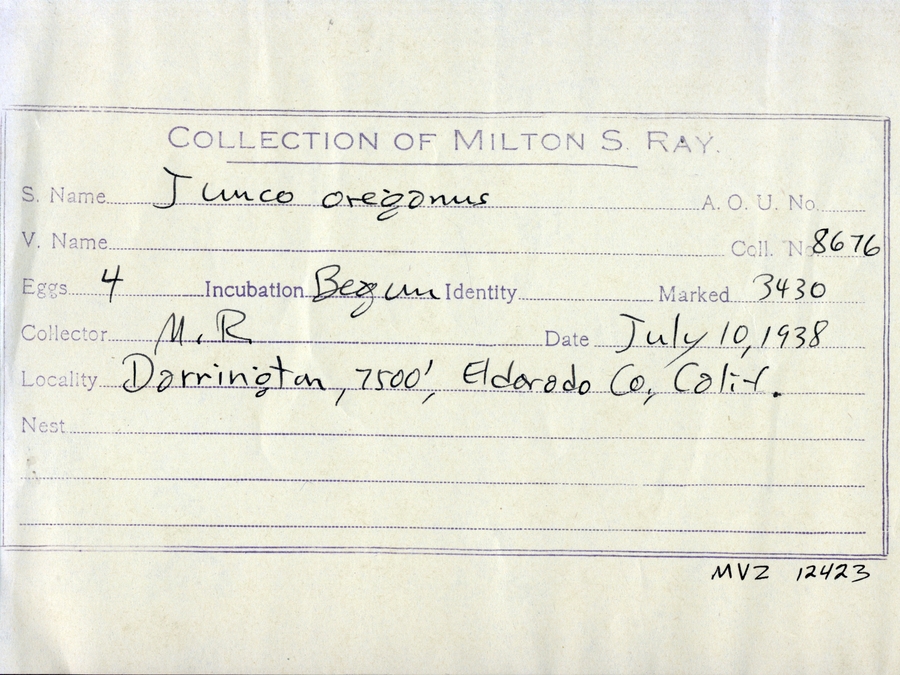 COLLECTION OF MILTON S. RAY.
S. Name Junco oreganus A. O. U. No.
V. Name Coll. No 8676
Eggs 4 Incubation Begun Identity Marked 3430
Collector M. R Date July 10, 1938
Locality Dorrington, 7500', Eldorado Co, Calif.
Nest
MVZ 12423